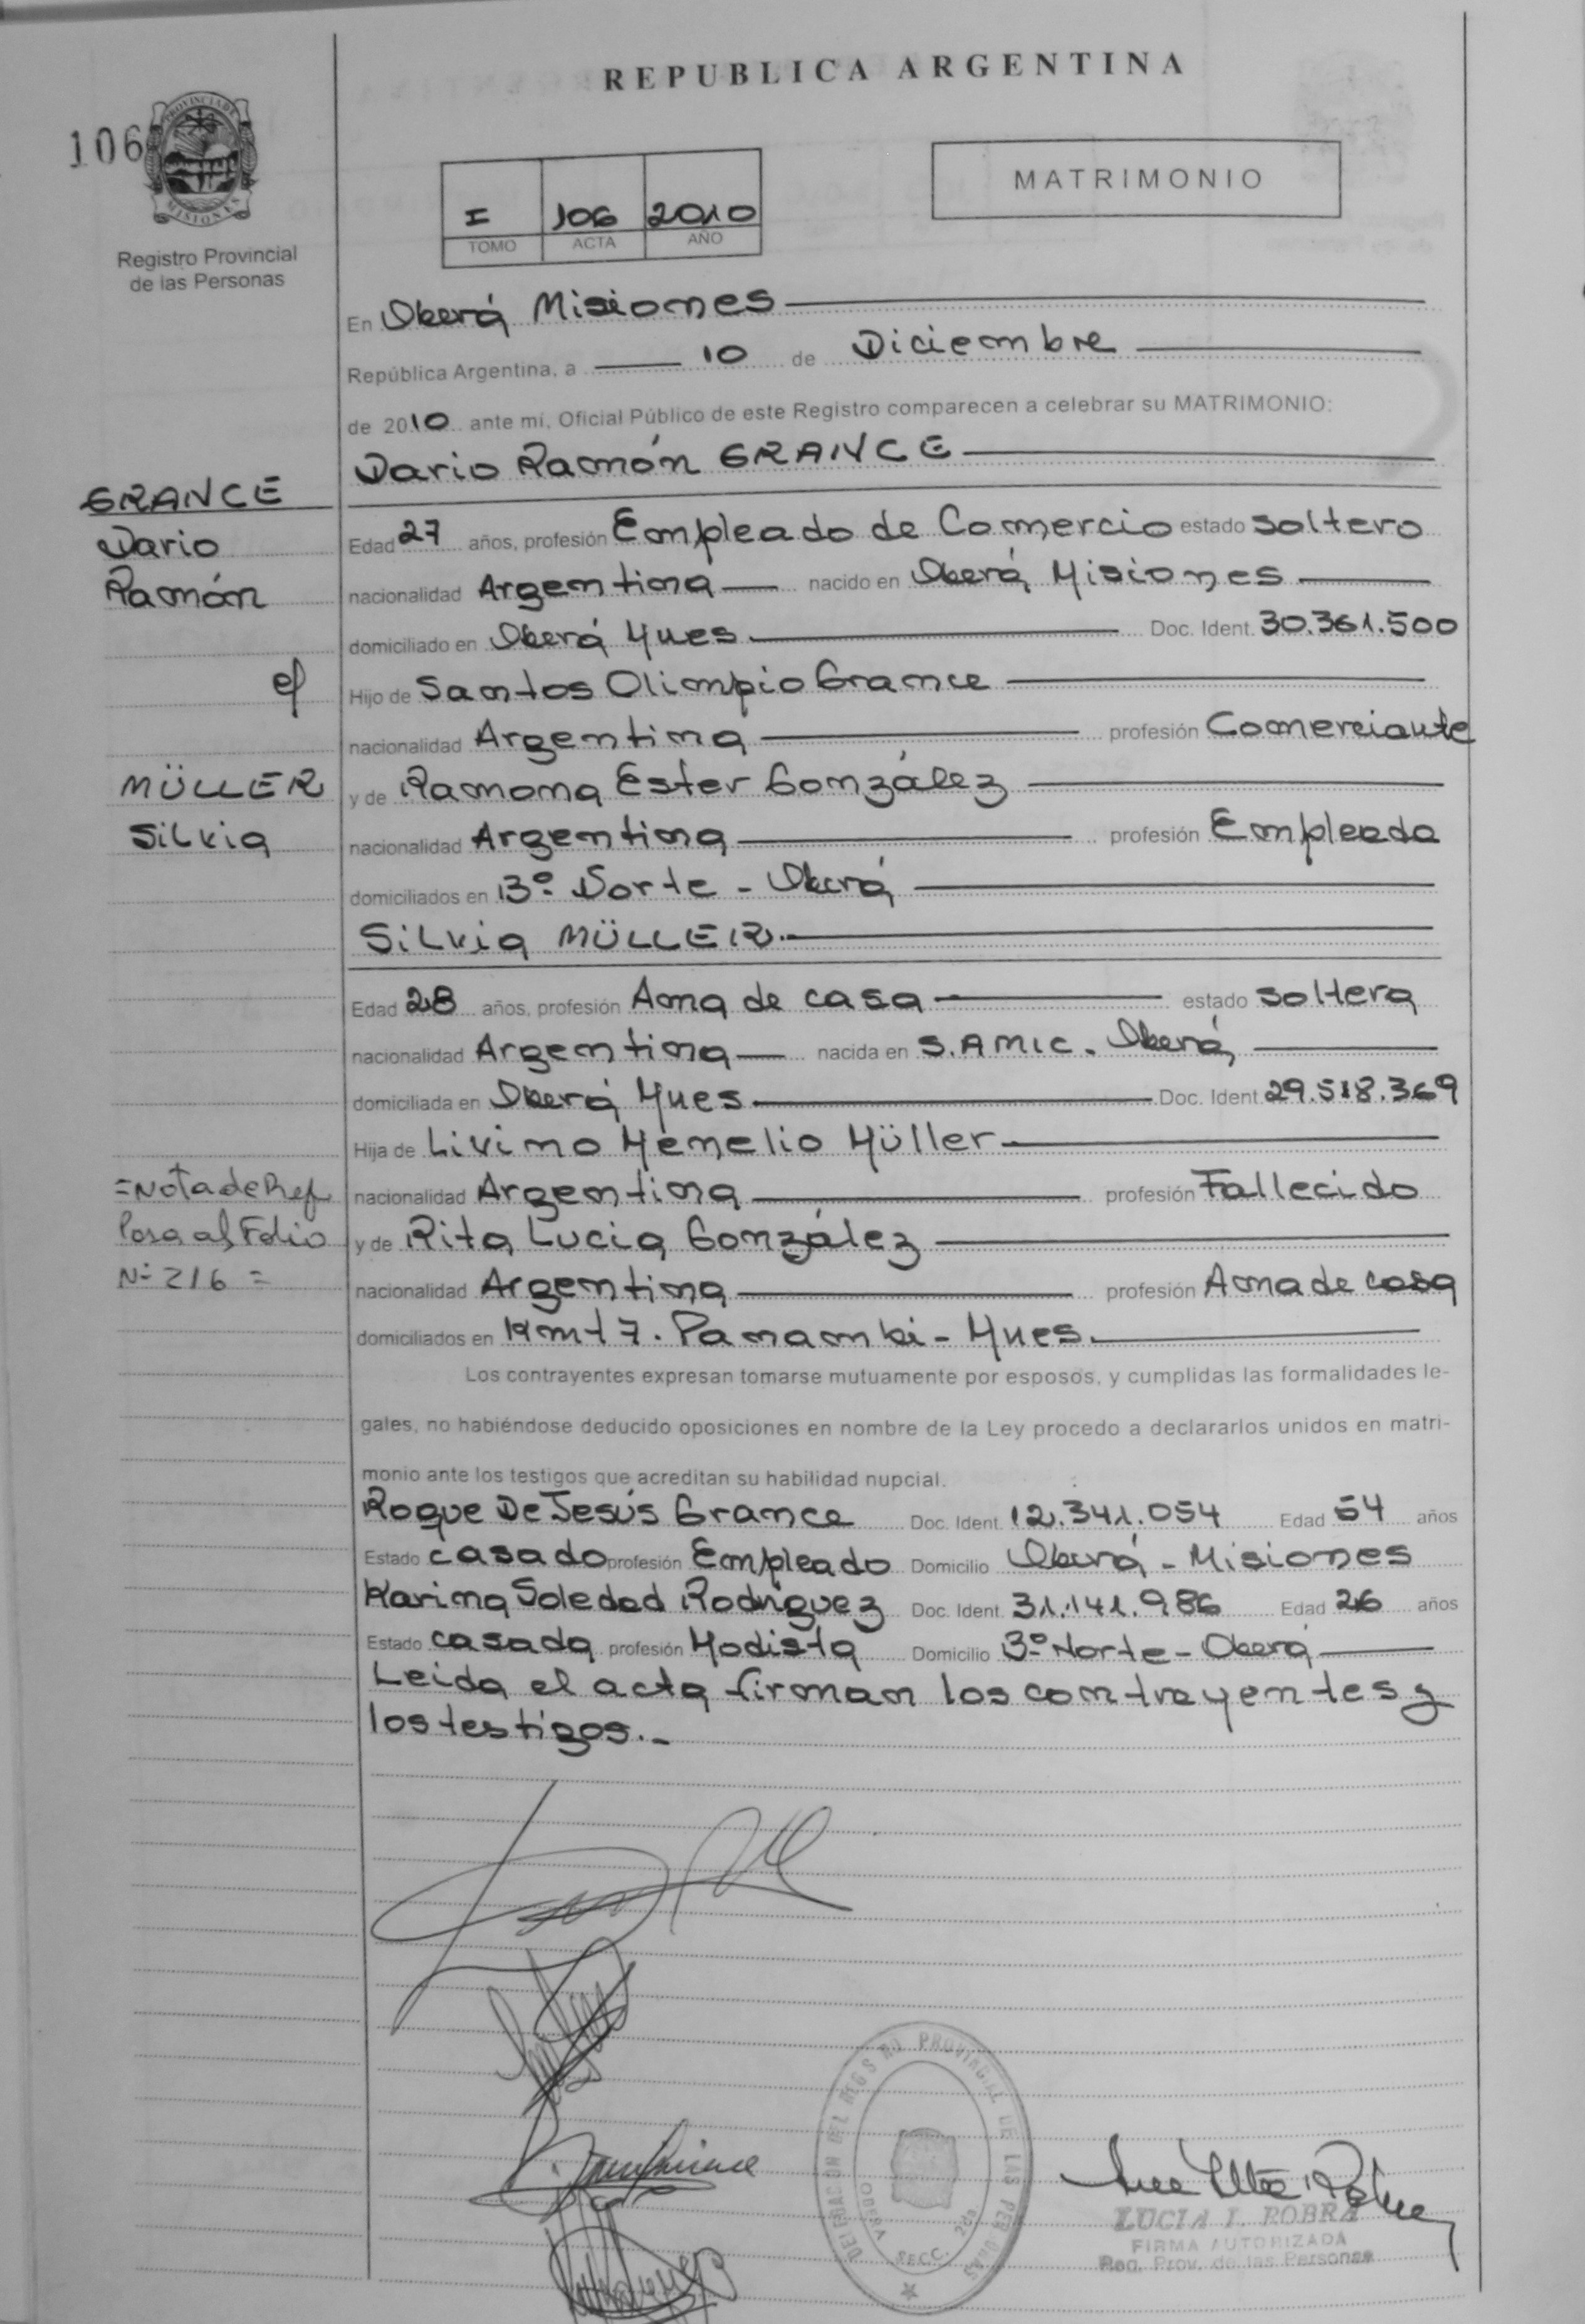 REPUBLICA ARGENTINA
106
PROVINCIA DE
MISIONES
Registro Provincial
de las Personas
I 106 2010
TOMO ACTA AÑO
MATRIMONIO
En Oberá Misiones
República Argentina, a 10 de Diciembre
de 2010 ante mí, Oficial Público de este Registro comparecen a celebrar su MATRIMONIO:
Dario Ramón GRANCE
GRANCE
Dario
Ramón
c/
MÜLLER
Silvia
Edad 27 años, profesión Empleado de Comercio estado soltero
nacionalidad Argentina nacido en Oberá Misiones
domiciliado en Oberá Mnes Doc. Ident. 30.361.500
Hijo de Santos Olimpio Grance
nacionalidad Argentina profesión Comerciante
y de Ramona Ester González
nacionalidad Argentina profesión Empleada
domiciliados en B° Norte - Oberá
Silvia MÜLLER.
Edad 28 años, profesión Ama de casa estado soltera
nacionalidad Argentina nacida en S.A MIC. Oberá
domiciliada en Oberá Mnes Doc. Ident. 29.518.369
Hija de Livino Menelio Müller
nacionalidad Argentina profesión Fallecido
y de Rita Lucia González
nacionalidad Argentina profesión Ama de casa
domiciliados en Kmt 7. Panambi - Mnes.
=Nota de Ref
Pasa al Folio
N° 216 =
Los contrayentes expresan tomarse mutuamente por esposos, y cumplidas las formalidades le-
gales, no habiéndose deducido oposiciones en nombre de la Ley procedo a declararlos unidos en matri-
monio ante los testigos que acreditan su habilidad nupcial.
Roque De Jesús Grance Doc. Ident. 12.341.054 Edad 54 años
Estado casado profesión Empleado Domicilio Oberá - Misiones
Karina Soledad Rodriguez Doc. Ident. 31.141.986 Edad 26 años
Estado casada profesión Modista Domicilio B° Norte - Oberá
Leida el acta firman los contrayentes y
los testigos.-
DELEGACION DEL REGISTRO PROVINCIAL DE LAS PERSONAS
OBERA
SECC. 2da
LUCIA I. ROBRA
FIRMA AUTORIZADA
Reg. Prov. de las Personas